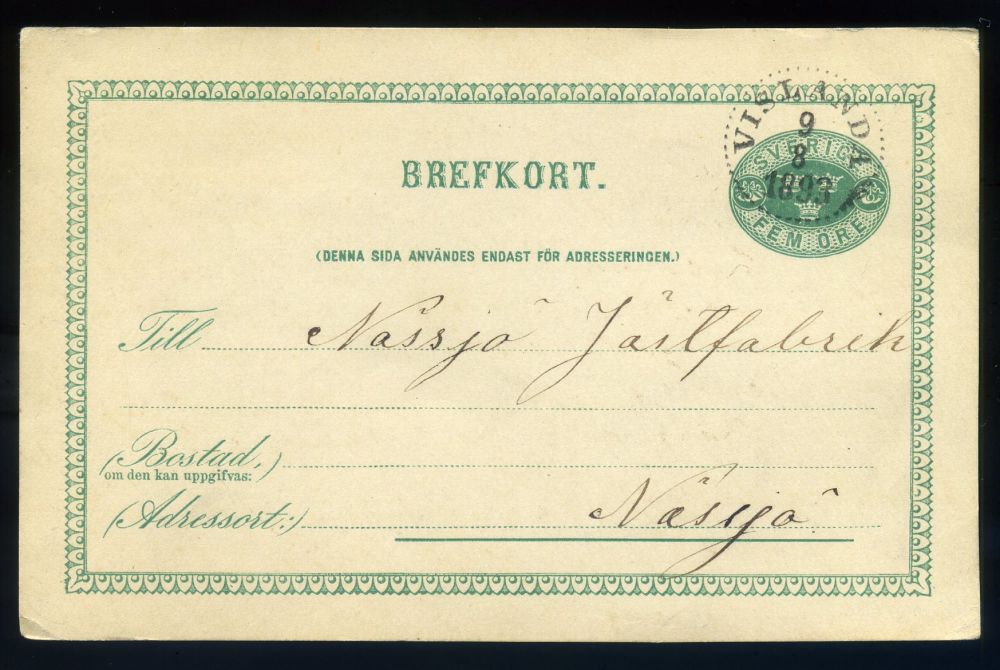 VISLANDA
9
8
1893
SVERIGE
FEM ÖRE
BREFKORT.
(DENNA SIDA ANVÄNDES ENDAST FÖR ADRESSERINGEN.)
Till Nässjö Jästfabrik
(Bostad,)
om den kan uppgifvas:
(Adressort:) Nässjö